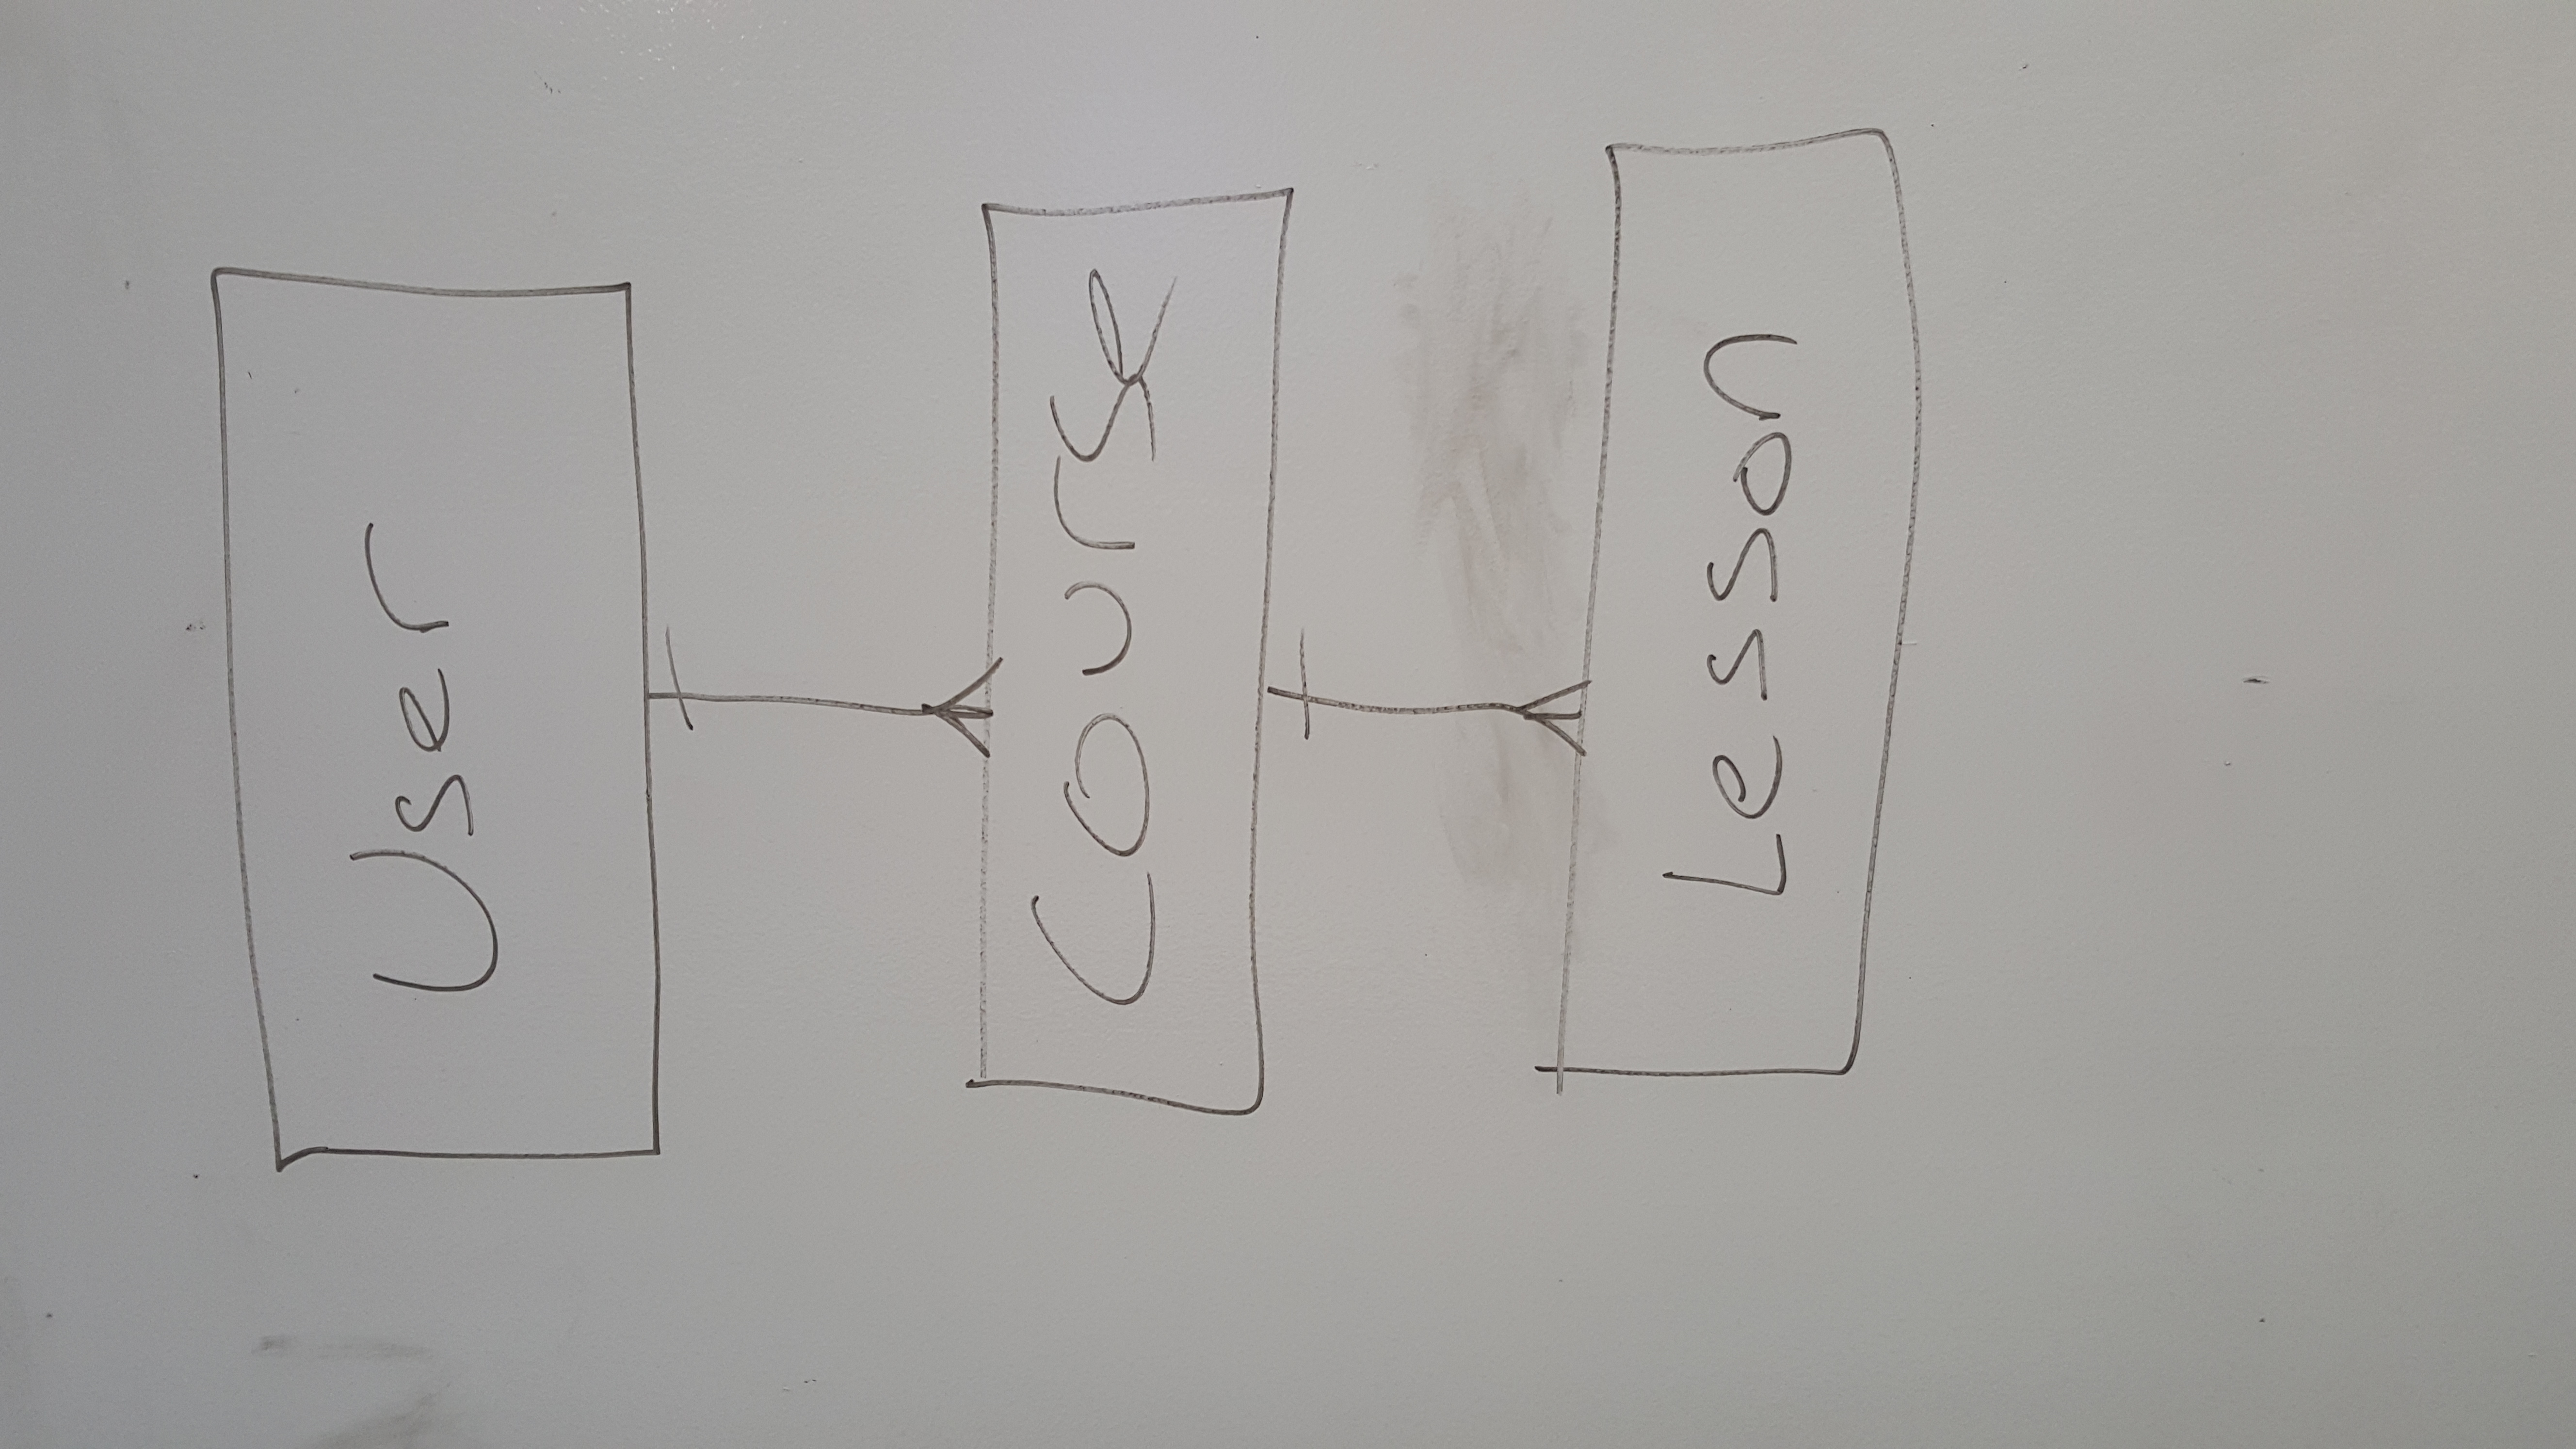 User
Course
Lesson